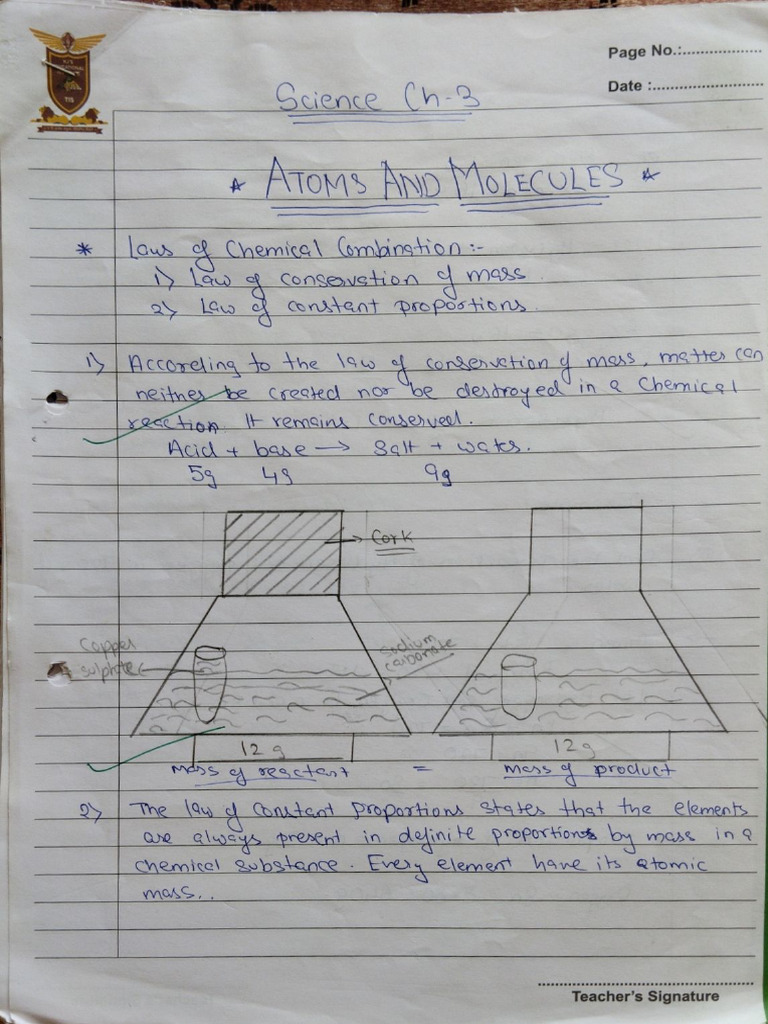 Page No.:...................
Date :.........................
Science Ch-3
* ATOMS AND MOLECULES *
* Laws of Chemical Combination:-
1) Law of conservation of mass
2) Law of constant proportions.
1) According to the law of conservation of mass, matter can
neither be created nor be destroyed in a chemical
reaction. It remains conserved.
Acid + base → Salt + water.
5g 4g 9g
→ Cork
Copper
sulphate
Sodium
carbonate
12 g
12g
Mass of reactant = Mass of product
2) The law of constant proportions states that the elements
are always present in definite proportions by mass in a
chemical substance. Every element have its atomic
mass..
Teacher's Signature